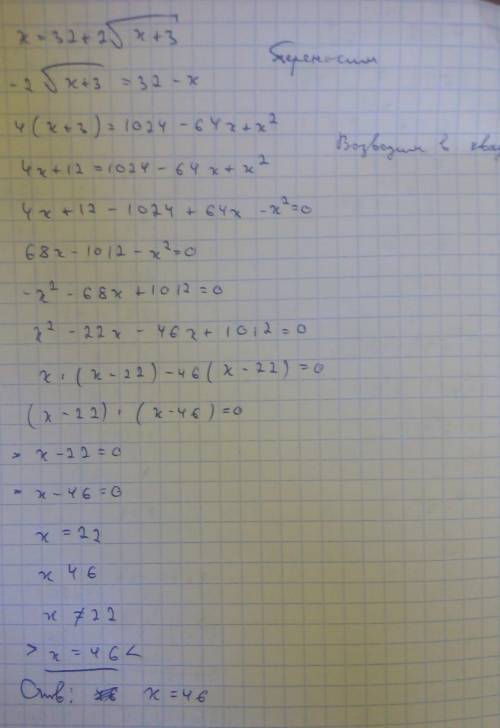 x = 32 + 2√(x+3)
переносим
-2√(x+3) = 32 - x
4(x+3) = 1024 - 64x + x²
Возводим в
4x + 12 = 1024 - 64x + x²
4x + 12 - 1024 + 64x - x² = 0
68x - 1012 - x² = 0
-x² - 68x + 1012 = 0
x² - 22x - 46x + 1012 = 0
x · (x - 22) - 46(x - 22) = 0
(x - 22) · (x - 46) = 0
x - 22 = 0
x - 46 = 0
x = 22
x 46
x ≠ 22
> x = 46 <
Отв: x = 46